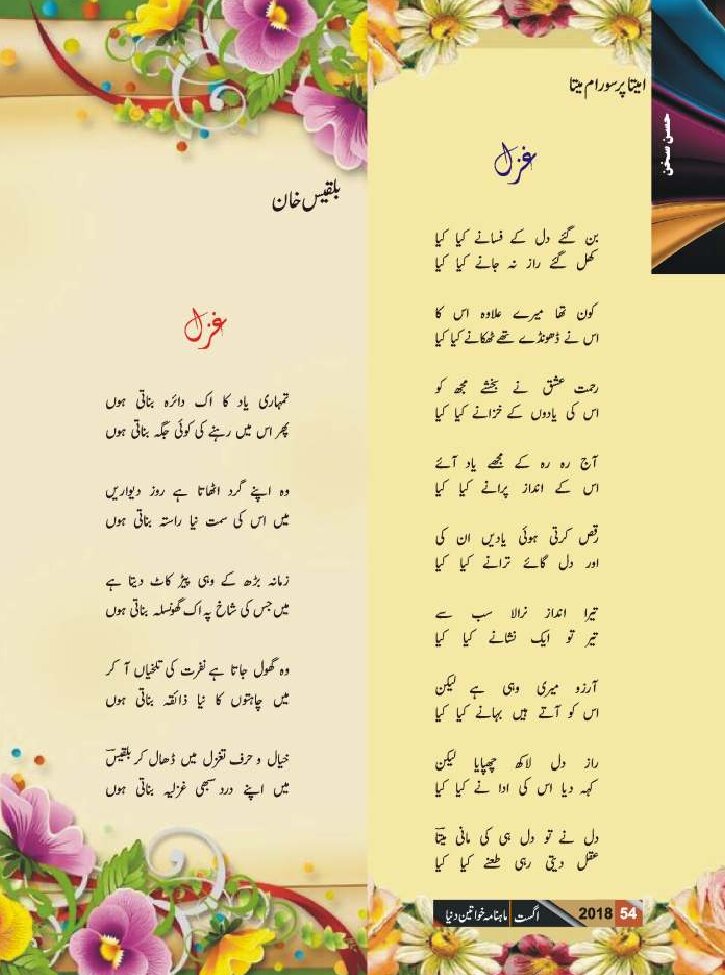 حسن سخن
امیتا پرسورام میتا
غزل
بن گئے دل کے فسانے کیا کیا
کھل گئے راز نہ جانے کیا کیا
کون تھا میرے علاوہ اس کا
اس نے ڈھونڈے تھے ٹھکانے کیا کیا
رحمت عشق نے بخشے مجھ کو
اس کی یادوں کے خزانے کیا کیا
آج رہ رہ کے مجھے یاد آئے
اس کے انداز پرانے کیا کیا
رقص کرتی ہوئی یادیں ان کی
اور دل گائے ترانے کیا کیا
تیرا انداز نرالا سب سے
تیر تو ایک نشانے کیا کیا
آرزو میری وہی ہے لیکن
اس کو آتے ہیں بہانے کیا کیا
راز دل لاکھ چھپایا لیکن
کہہ دیا اس کی ادا نے کیا کیا
دل نے تو دل ہی کی مانی میتاؔ
عقل دیتی رہی طعنے کیا کیا
بلقیس خان
غزل
تمہاری یاد کا اک دائرہ بناتی ہوں
پھر اس میں رہنے کی کوئی جگہ بناتی ہوں
وہ اپنے گرد اٹھاتا ہے روز دیواریں
میں اس کی سمت نیا راستہ بناتی ہوں
زمانہ بڑھ کے وہی پیڑ کاٹ دیتا ہے
میں جس کی شاخ پہ اک گھونسلہ بناتی ہوں
وہ گھول جاتا ہے نفرت کی تلخیاں آ کر
میں چاہتوں کا نیا ذائقہ بناتی ہوں
خیال و حرف تغزل میں ڈھال کر بلقیسؔ
میں اپنے درد سبھی غزلیہ بناتی ہوں
ماہنامہ خواتین دنیا | اگست 2018 54